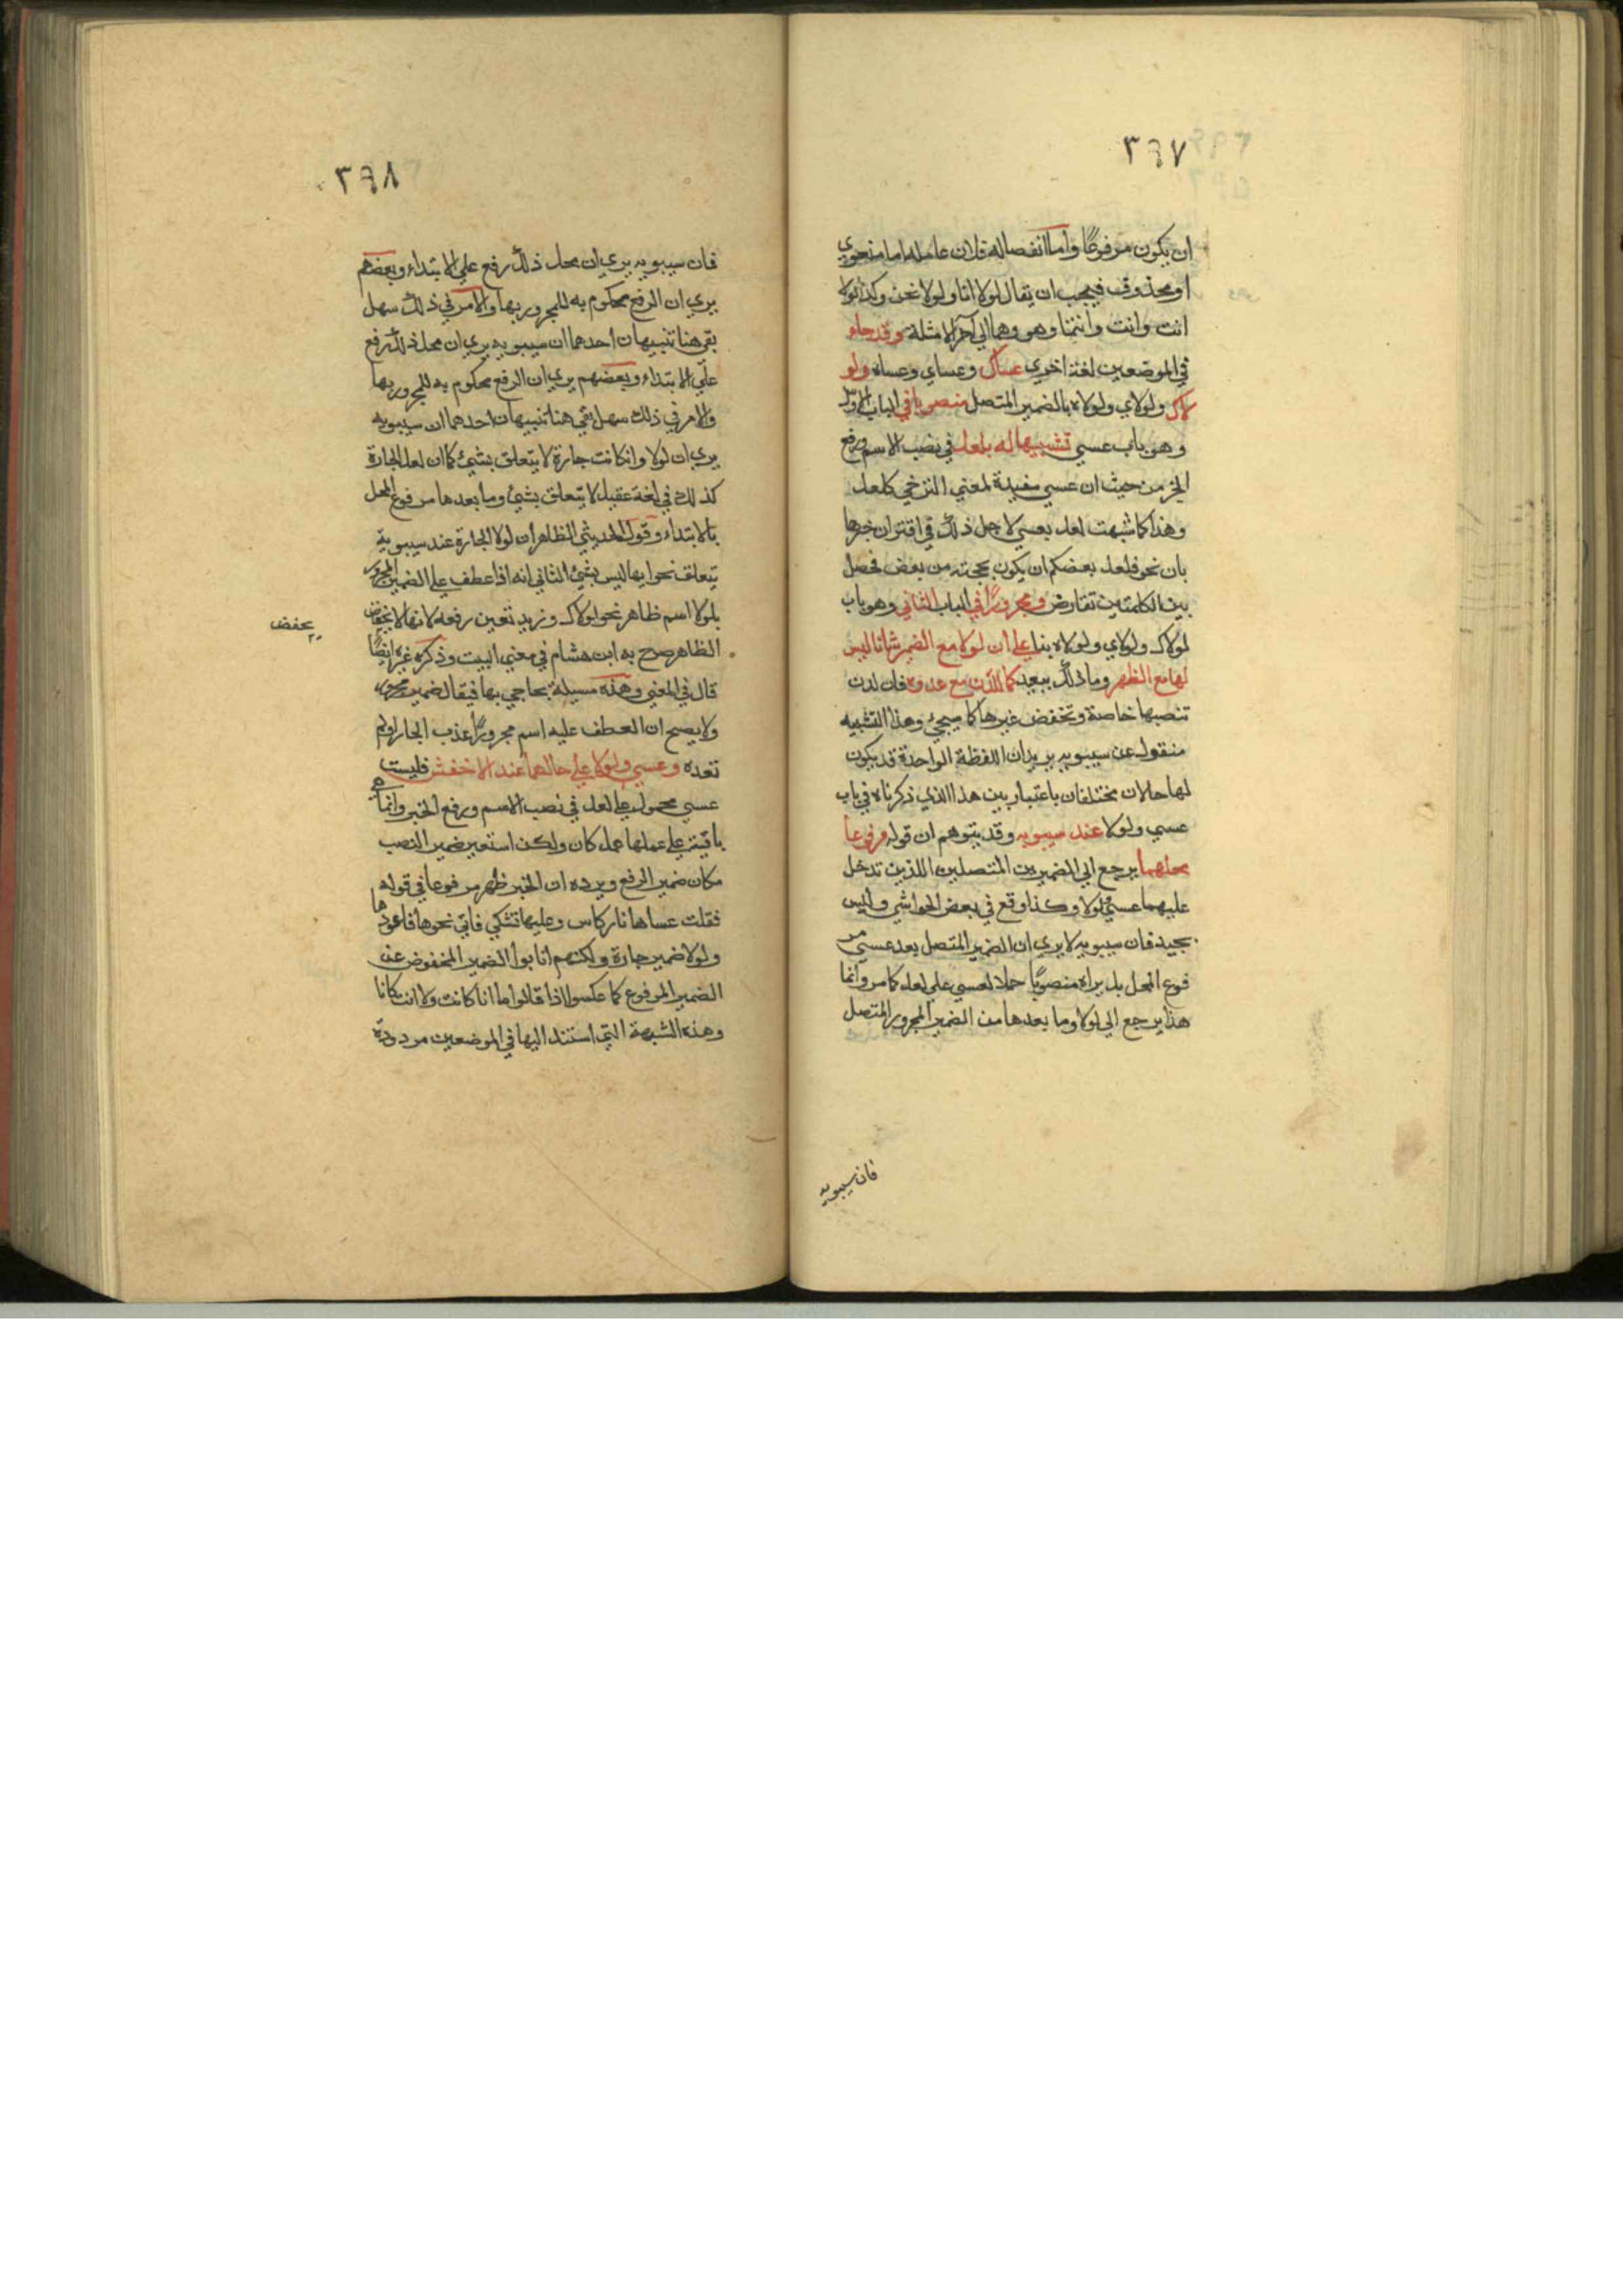 ٣٦٧
ان يكون مرفوعًا واما انفصاله فلان عامله اما معنوي
او محذوف فيجب ان يقال لولا انا ولولا نحن وكذا لولا
انت وانت وانتما وهو وهما الي آخر الامثلة وقد جاء
في الموضعين لغة اخري عساك وعساي وعساه ولو
لاك ولولاي ولولاه بالضمير المتصل منصوبا في الباب الاول
وهو باب عسي تشبيها له بلعل في نصب الاسم ورفع
الخبر من حيث ان عسي مفيدة لمعني الترجي كلعل
وهذا كما شبهت لعل بعسي لاجل ذلك في اقتران خبرها
بان نحو فلعل بعضكم ان يكون بحجته من بعض فحصل
بين الكلمتين تقارض ومجرورًا في الباب الثاني وهو باب
لولاك ولولاي ولولاه بنا علي ان لولا مع الضمير شانا ليس
لها مع الظهر وما ذلك ببعيد كما للدن مع غدوة فان لدن
تنصبها خاصة وتخفض غيرها كما سيجئ وهذا التشبيه
منقول عن سيبويه يريد ان اللفظة الواحدة قد يكون
لها حالان مختلفان باعتبارين هذا الذي ذكرناه في باب
عسي ولولا عند سيبويه وقد يتوهم ان قوله مرفوعا
محلهما يرجع الي الضميرين المتصلين اللذين تدخل
عليهما عسي ولولا وكذا وقع في بعض الحواشي وليس
بجيد فان سيبويه لا يري ان الضمير المتصل بعد عسي مر
فوع المحل بل يراه منصوبًا حملا لعسي علي لعل كما مر وانما
هذا يرجع الي لولا وما بعدها من الضمير المجرور المتصل
فان سيبويه
٣٦٨
فان سيبويه يري ان محل ذلك رفع علي الابتداء وبعضهم
يري ان الرفع محكوم به للمجرور بها والامر في ذلك سهل
بقي هنا تنبيهان احدهما ان سيبويه يري ان محل ذلك رفع
علي الابتداء وبعضهم يري ان الرفع محكوم به للمجرور بها
والامر في ذلك سهل بقي هنا تنبيهان احدهما ان سيبويه
يري ان لولا وان كانت جارة لا يتعلق بشيئ كما ان لعل الجارة
كذلك في لغة عقيل لا يتعلق بشيئ وما بعدها مرفوع المحل
بالابتداء وقول الحديثي الظاهر ان لولا الجارة عند سيبويه
يتعلق نحوابها ليس بشيئ الثاني انه اذا عطف علي الضمير المجرور
بلولا اسم ظاهر نحو لولاك وزيد تعين رفعه لانها لا تخفض
يخفض
الظاهر صرح به ابن هشام في مغني البيت وذكره غيره ايضًا
قال في المغني وهذه مسيلة يحاجي بها فيقال ضمير مجرور
ولا يصح ان العطف عليه اسم مجرورًا عذب الجار او لم
تعده وعسي ولولا علي حالهما عند الاخفش فليست
عسي محمول علي لعل في نصب الاسم ورفع الخبر وانما هي
باقية علي عملها عمل كان ولكن استعير ضمير النصب
مكان ضمير الرفع ويرده ان الخبر ظهر مرفوعا في قوله
فقلت عساها نار كاس وعليها تشكي فآتي نحوها فاعودها
ولولا ضمير جارة ولكنهم انابوا الضمير المخفوض عن
الضمير المرفوع كما عكسوا اذا قالوا ما انا كانت ولا انت كانا
وهذه الشبهة التي استند اليها في الموضعين مردودة